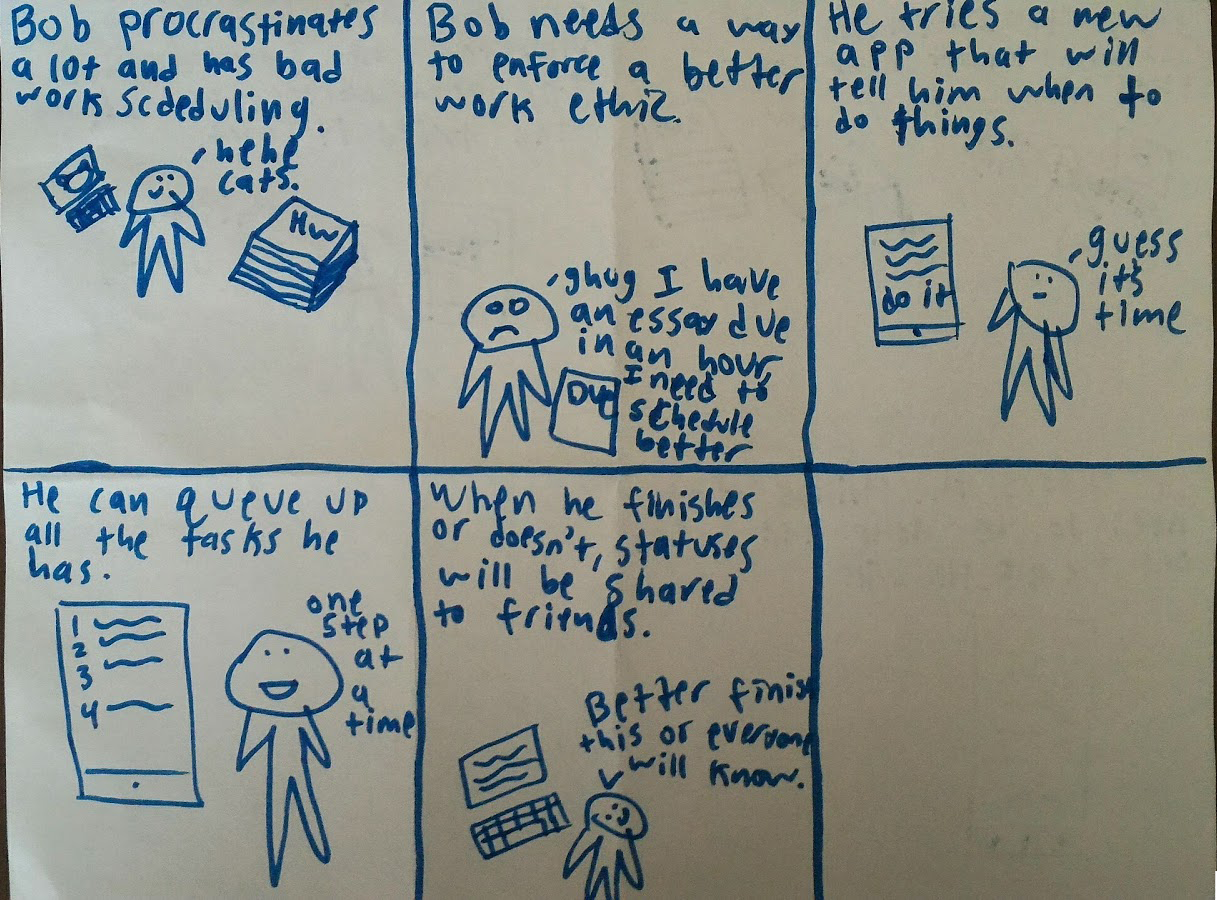 Bob procrastinates
a lot and has bad
work scdeduling.
hehe
cats.
HW
Bob needs a way
to enforce a better
work ethic.
ghug I have
an essay due
in an hour,
I need to
schedule
better
Due
He tries a new
app that will
tell him when to
do things.
do it
guess
its
time
He can queue up
all the tasks he
has.
1
2
3
4
one
step
at
a
time
When he finishes
or doesn't, statuses
will be shared
to friends.
Better finish
this or everyone
will know.